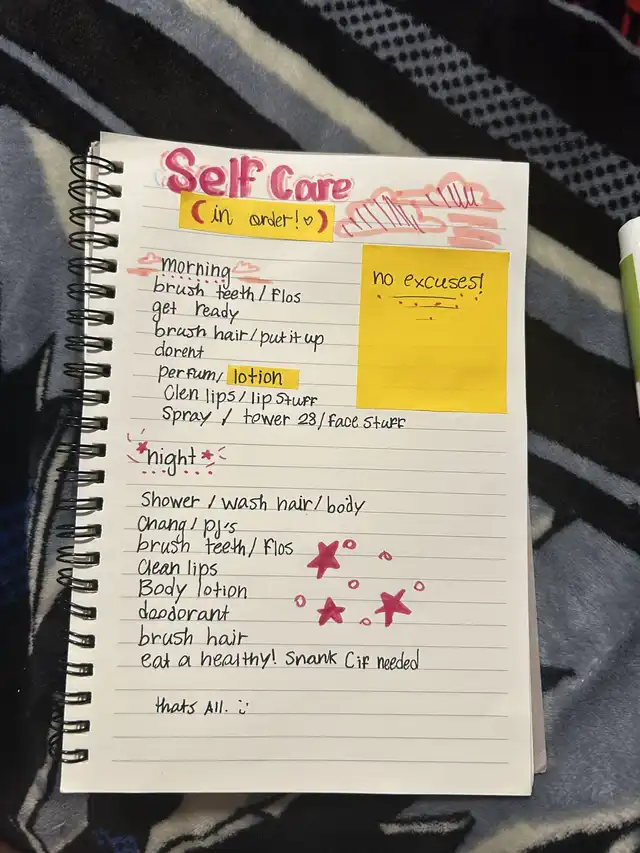 Self Care
(in order!♡)
no excuses!
morning
brush teeth/flos
get ready
brush hair/put it up
dorent
perfum/lotion
Clen lips/lip stuff
Spray / tower 28/face stuff
night
Shower / wash hair/body
Chang/pj's
brush teeth/flos
Clean lips
Body lotion
deodorant
brush hair
eat a healthy! Snank (if needed
thats All. :)